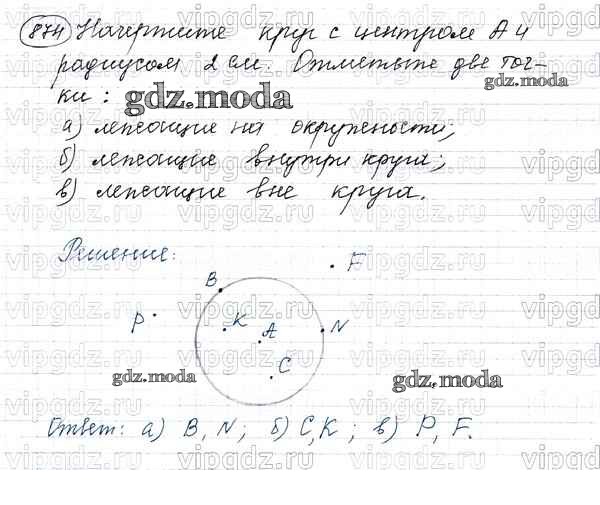 874 Начертите круг с центром А и
радиусом 2 см. Отметьте две точ-
ки:
gdz.moda
gdz.moda
а) лежащие на окружности;
б) лежащие внутри круга;
в) лежащие вне круга.
Решение:
F
B
P
K
A
N
C
gdz.moda
gdz.moda
Ответ: а) B, N; б) C, K; в) P, F.
vipgdz.ru